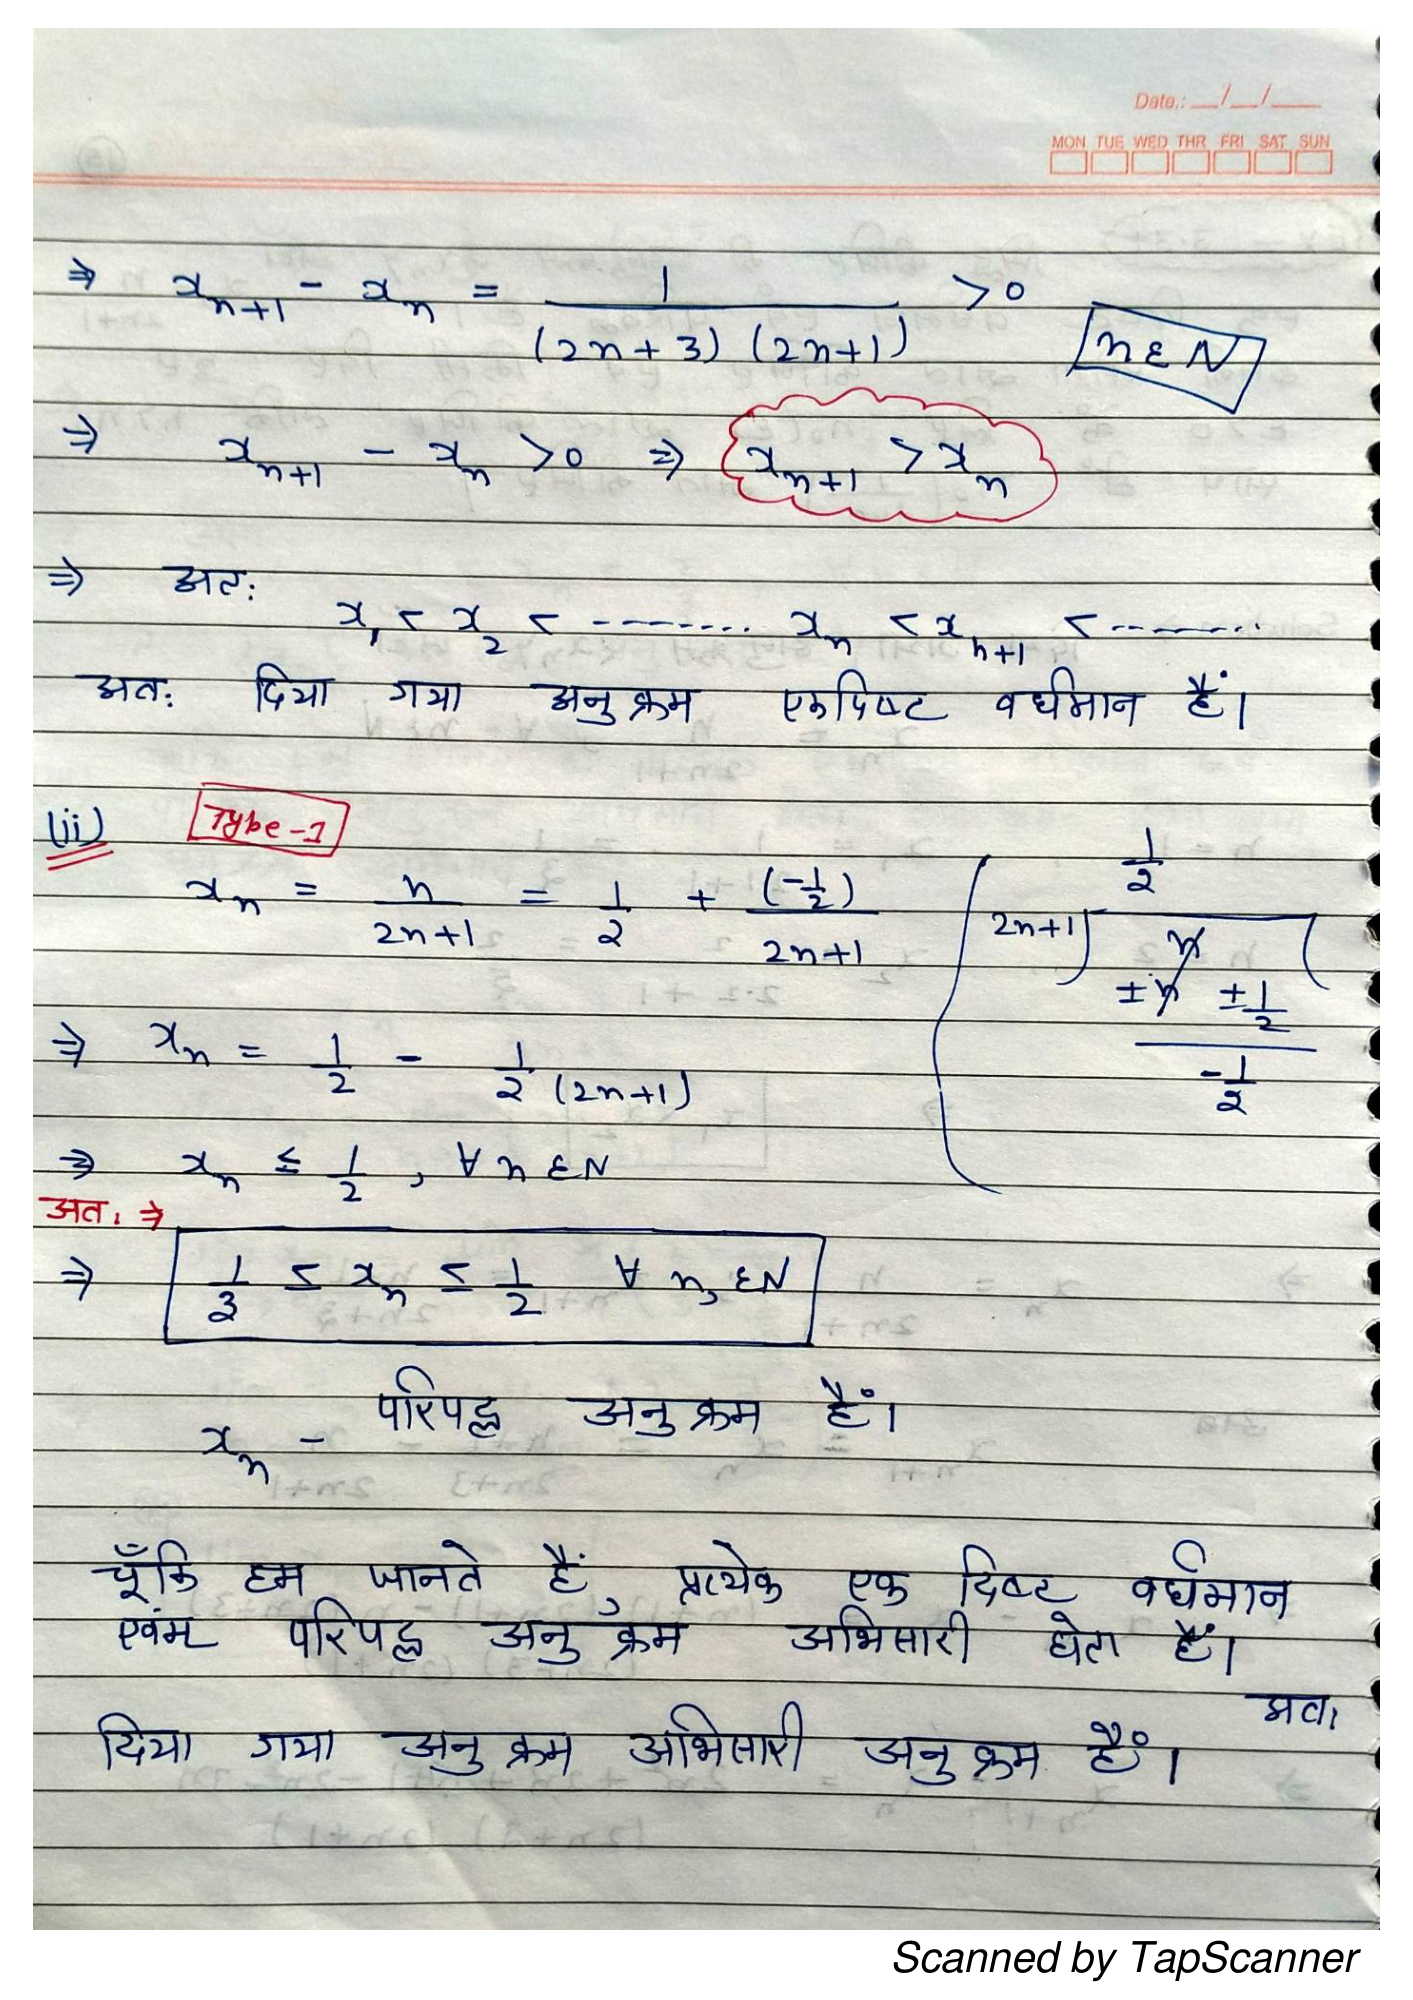 Date.: __/__/___
MON TUE WED THR FRI SAT SUN
⇒ x_{n+1} - x_n = 1/((2n+3)(2n+1)) >0 n ε N
⇒ x_{n+1} - x_n >0 ⇒ x_{n+1} > x_n
⇒ अतः
x_1 < x_2 < -------- x_n < x_{n+1} < --------
अतः दिया गया अनुक्रम एकदिष्ट वर्धमान हैं।
(ii) Type-1
x_n = n/(2n+1) = 1/2 + (-1/2)/(2n+1)
1/2
2n+1) n (
±n ±1/2
-1/2
⇒ x_n = 1/2 - 1/2(2n+1)
⇒ x_n ≤ 1/2, ∀ n ε N
अतः ⇒
⇒ 1/3 ≤ x_n ≤ 1/2 ∀ n, ε N
x_n - परिपद्ध अनुक्रम हैं।
चूँकि हम जानते हैं, प्रत्येक एक दिष्ट वर्धमान
एवंम परिपद्ध अनुक्रम अभिसारी होता हैं।
अतः
दिया गया अनुक्रम अभिसारी अनुक्रम हैं।
Scanned by TapScanner